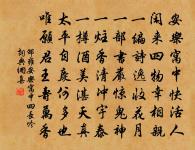 安樂窩中快活人
閑來四物幸相親
一編詩逸收花月
一部書嚴驚鬼神
一炷香清沖宇泰
一樽酒美湛天真
太平自慶何多也
唯願君王壽萬春
邵雍安樂窩中四長吟
詞典網